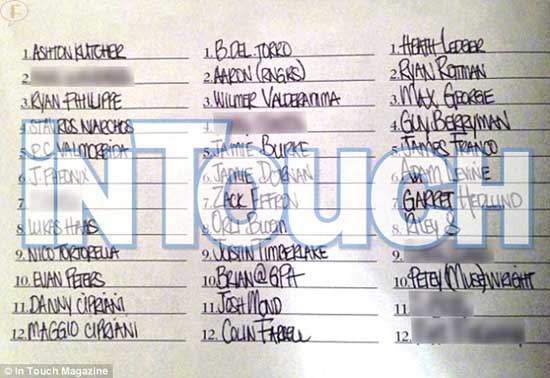 F
1. ASHTON KUTCHER
2.
3. RYAN PHILIPPE
4. STAVROS NIARCHOS
5. P.C. VALMORBIDA
6. J. PHEONIX
7.
8. LUKAS HAAS
9. NICO TORTORELLA
10. EVAN PETERS
11. DANNY CIPRIANI
12. MAGGIO CIPRIANI
1. B. DEL TORRO
2. AARON (RNGRS)
3. WILMER VALDERAMMA
4.
5. JAMIE BURKE
6. JAMIE DORNAN
7. ZACK EFFRON
8. ORLI BLOOM
9. JUSTIN TIMBERLAKE
10. BRIAN @ GPA
11. JOSH
12. COLIN FARRELL
1. HEATH LEDGER
2. RYAN ROTTMAN
3. MAX GEORGE
4. GUY BERRYMAN
5. JAMES FRANCO
6. ADAM LEVINE
7. GARRET HEDLUND
8. RILEY S
9.
10. PETEY (MUSE) WRIGHT
11.
12.
INTOUCH
© In Touch Magazine